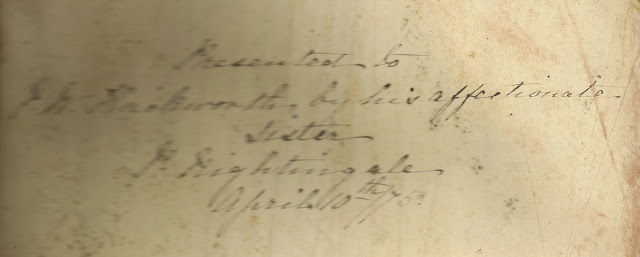 Presented to
J W Hackworth by his affectionate
Sister
P. Nightingale
April 10th/75